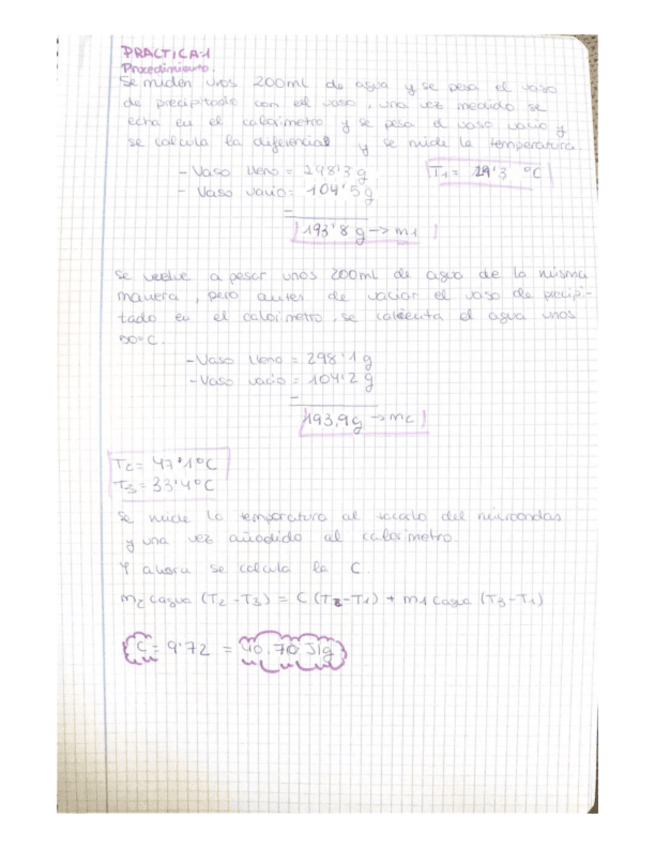 PRACTICA 1
Procedimiento.
Se miden unos 200ml de agua y se pesa el vaso
de precipitado con el vaso, una vez medido se
echa en el calorimetro y se pesa el vaso vacio y
se calcula la diferencia y se mide la temperatura.
- Vaso lleno = 298'3 g
T1 = 19'3 ºC
- Vaso vacio = 104'5 g
193'8 g → m1
Se vuelve a pesar unos 200ml de agua de la misma
manera, pero antes de vaciar el vaso de precipi-
tado en el calorimetro, se calienta el agua unos
50ºC.
- Vaso lleno = 298'1 g
- Vaso vacio = 104'2 g
193,9 g → m2
T2 = 47'1ºC
T3 = 33'4ºC
Se mide la temperatura al sacarlo del microondas
y una vez añadido al calorimetro.
Y ahora se calcula la C.
m2 cagua (T2 - T3) = C (T2 - T1) + m1 cagua (T3 - T1)
C = 9'72 = 40.70 J/g